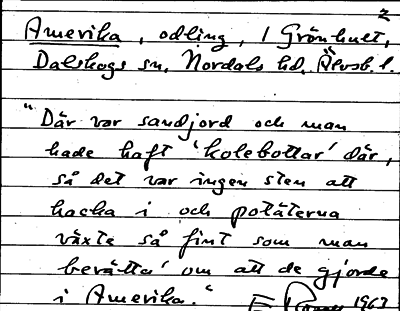 2
Amerika, odling, i Grönhult,
Dalskogs sn, Nordals hd, Älvsb. l.
"Där var sandjord och man
hade haft 'kolebottar' där,
så det var ingen sten att
hacka i och potäterna
växte så fint som man
berätta' om att de gjorde
i Amerika."
1963